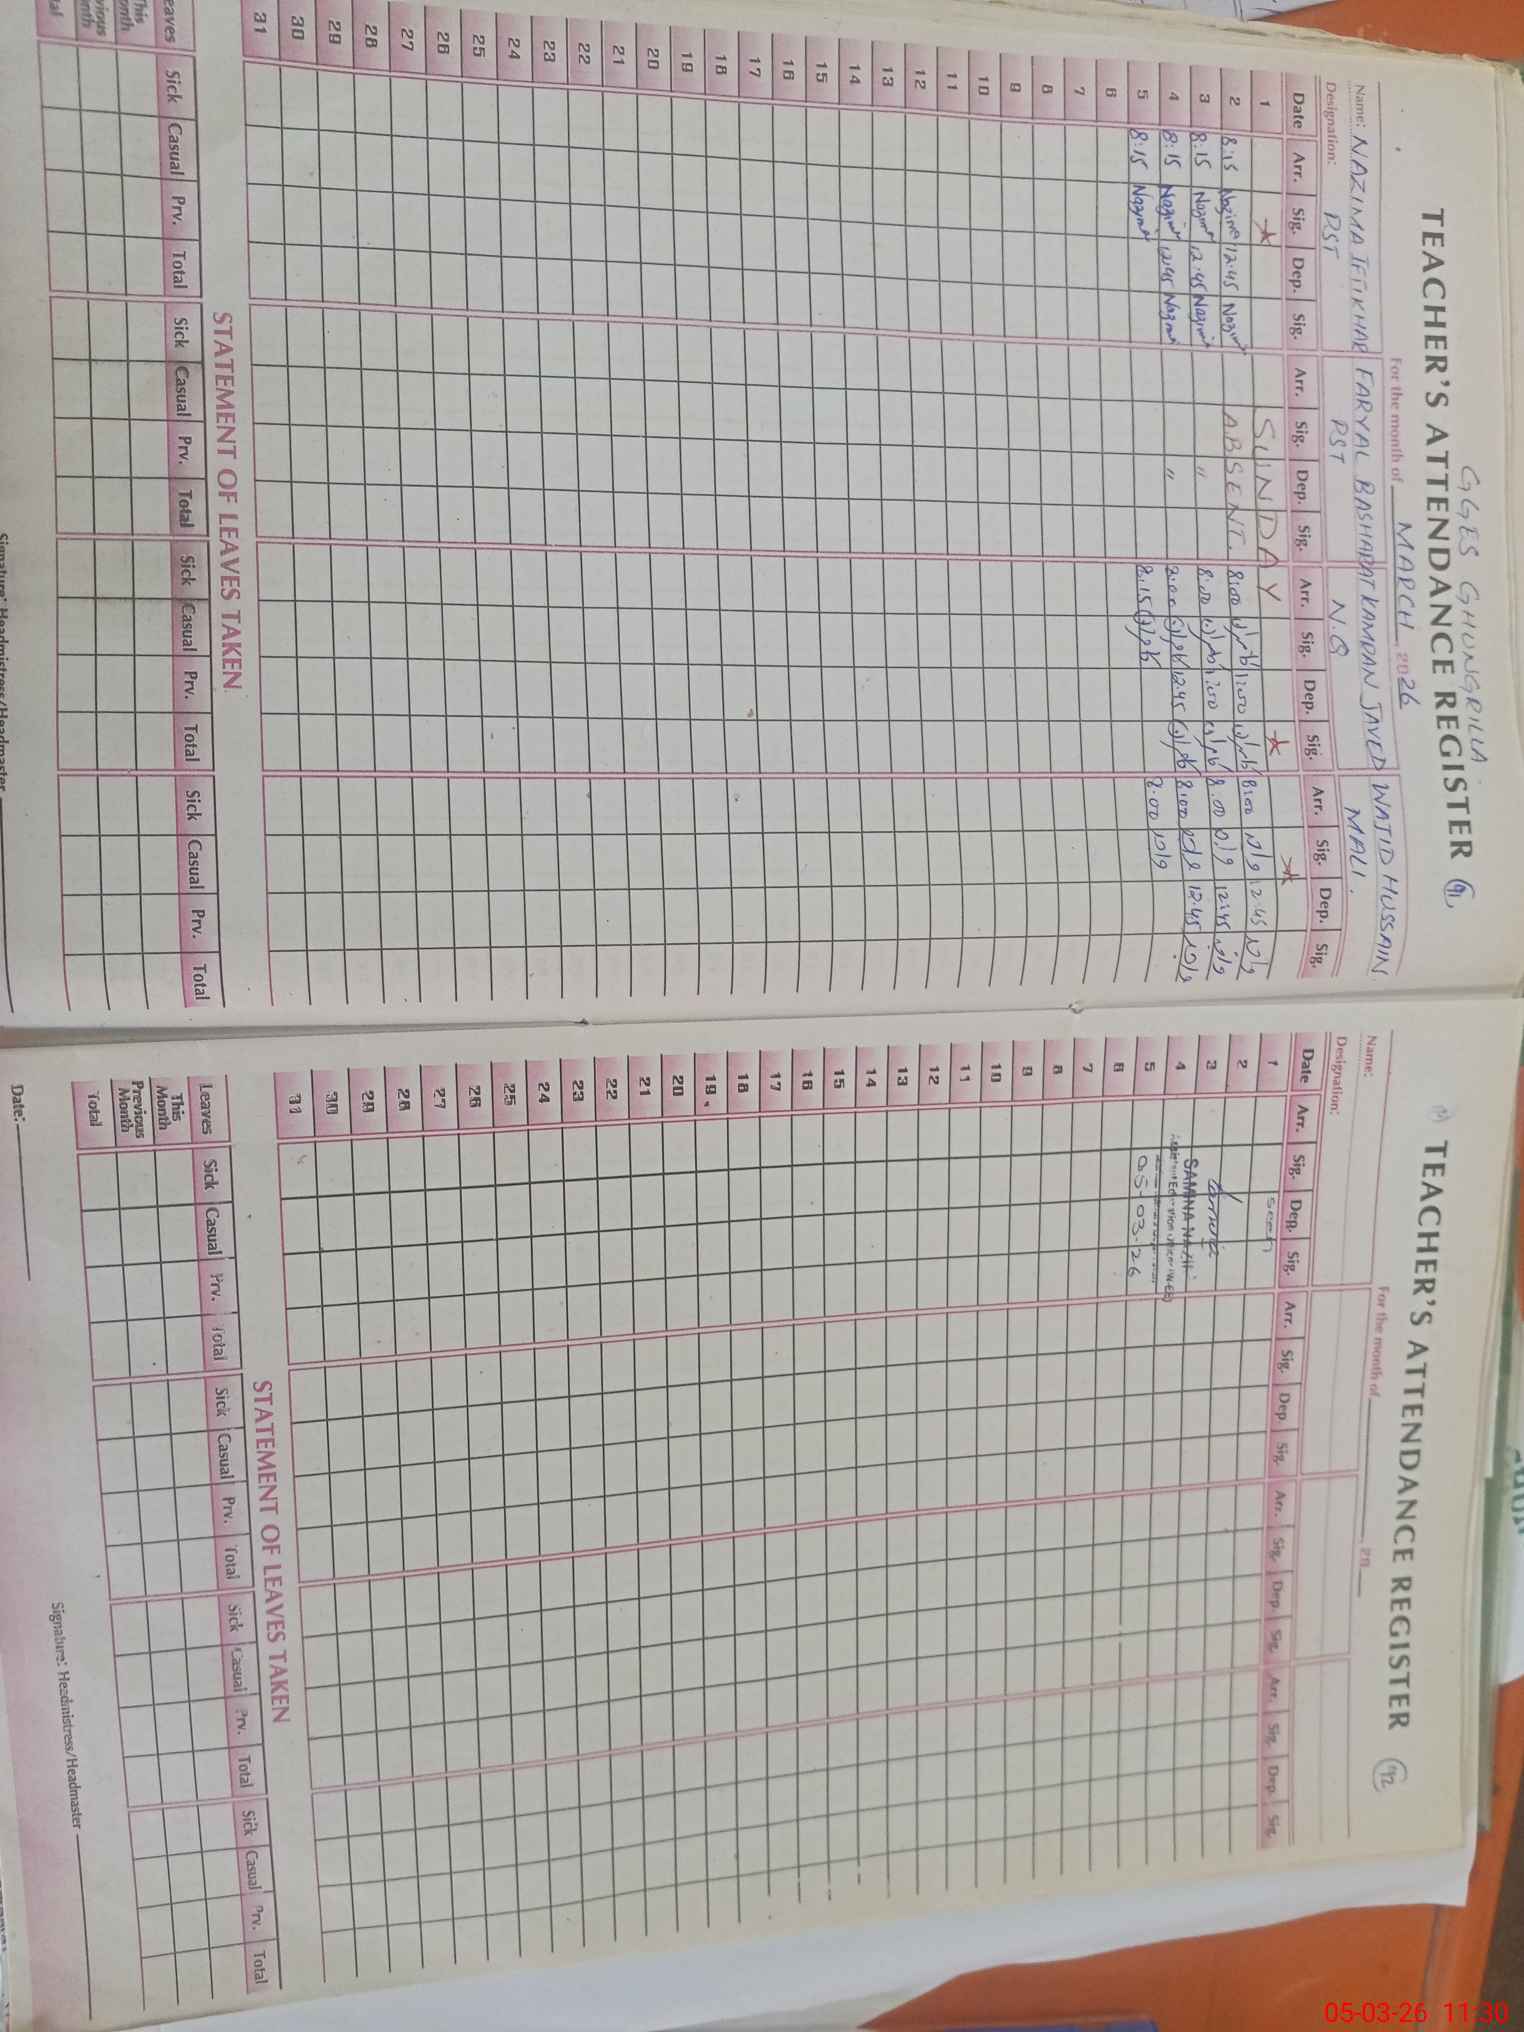 GGES GHUNGRILLA
TEACHER'S ATTENDANCE REGISTER 91
For the month of MARCH 2026
Name: NAZIMA IFTIKHAR FARYAL BASHARAT KAMRAN JAVED WAJID HUSSAIN
Designation: PST PST N.Q MALI.
Date Arr. Sig. Dep. Sig. Arr. Sig. Dep. Sig. Arr. Sig. Dep. Sig. Arr. Sig. Dep. Sig.
1 SUNDAY
2 8:15 Nazima 12:45 Nazima ABSENT. 8:00 12:00 8:00 12:45
3 8:15 Nazima 12:45 Nazima " 8:00 12:00 8:00 12:45
4 8:15 Nazima 12:45 Nazima " 8:00 12:45 8:00 12:45
5 8:15 Nazima 8:15 8:00
6
7
8
9
10
11
12
13
14
15
16
17
18
19
20
21
22
23
24
25
26
27
28
29
30
31
STATEMENT OF LEAVES TAKEN
eaves Sick Casual Prv. Total Sick Casual Prv. Total Sick Casual Prv. Total Sick Casual Prv. Total
This
onth
vious
onth
tal
Signature: Headmistress/Headmaster
TEACHER'S ATTENDANCE REGISTER 92
For the month of 20
Name:
Designation:
Date Arr. Sig. Dep. Sig. Arr. Sig. Dep. Sig. Arr. Sig. Dep. Sig. Arr. Sig. Dep. Sig.
1 Seen
2
3
4 SAMINA NAZIR
5 05-03-26
6
7
8
9
10
11
12
13
14
15
16
17
18
19
20
21
22
23
24
25
26
27
28
29
30
31
STATEMENT OF LEAVES TAKEN
Leaves Sick Casual Prv. Total Sick Casual Prv. Total Sick Casual Prv. Total Sick Casual Prv. Total
This
Month
Previous
Month
Total
Date: Signature: Headmistress/Headmaster
05-03-26 11:30